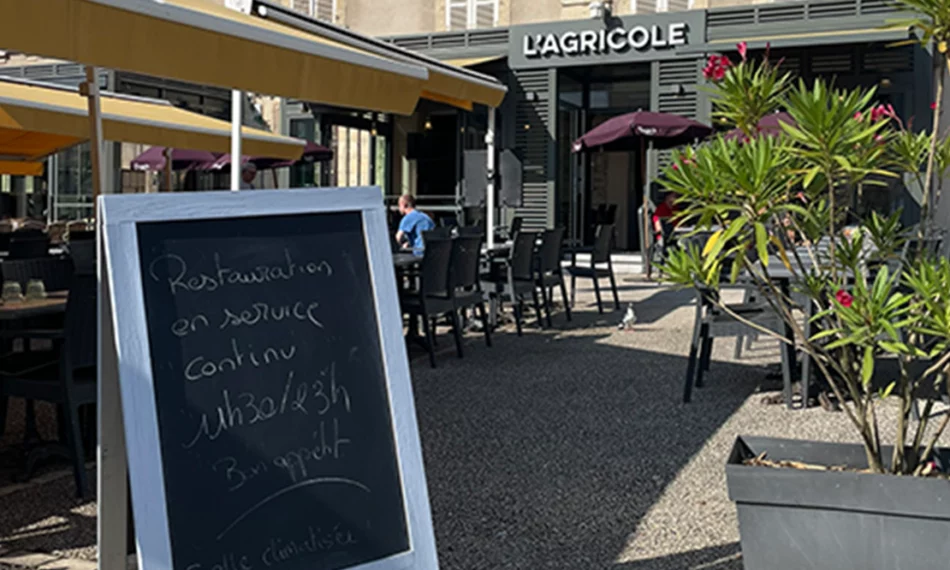 L'AGRICOLE
Restauration
en service
continu
11h30/23h
Bon appétit
Salle climatisée